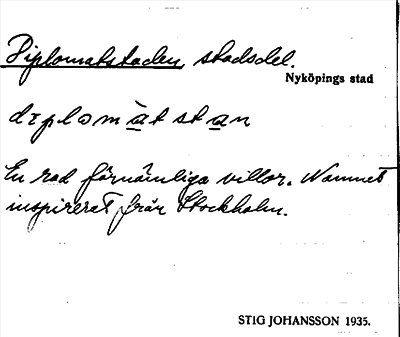 Diplomatstaden, stadsdel.
Nyköpings stad
diplomàtstan
En rad förnämliga villor. Namnet
inspirerat från Stockholm.
STIG JOHANSSON 1935.